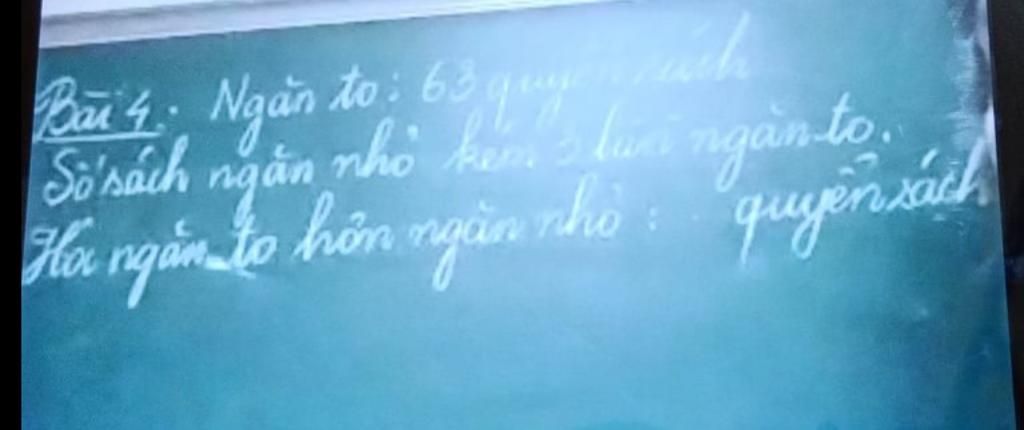 Bài 4. Ngăn to: 63 quyển sách
Số sách ngăn nhỏ kém 3 lần ngăn to.
Hỏi ngăn to hơn ngăn nhỏ: quyển sách